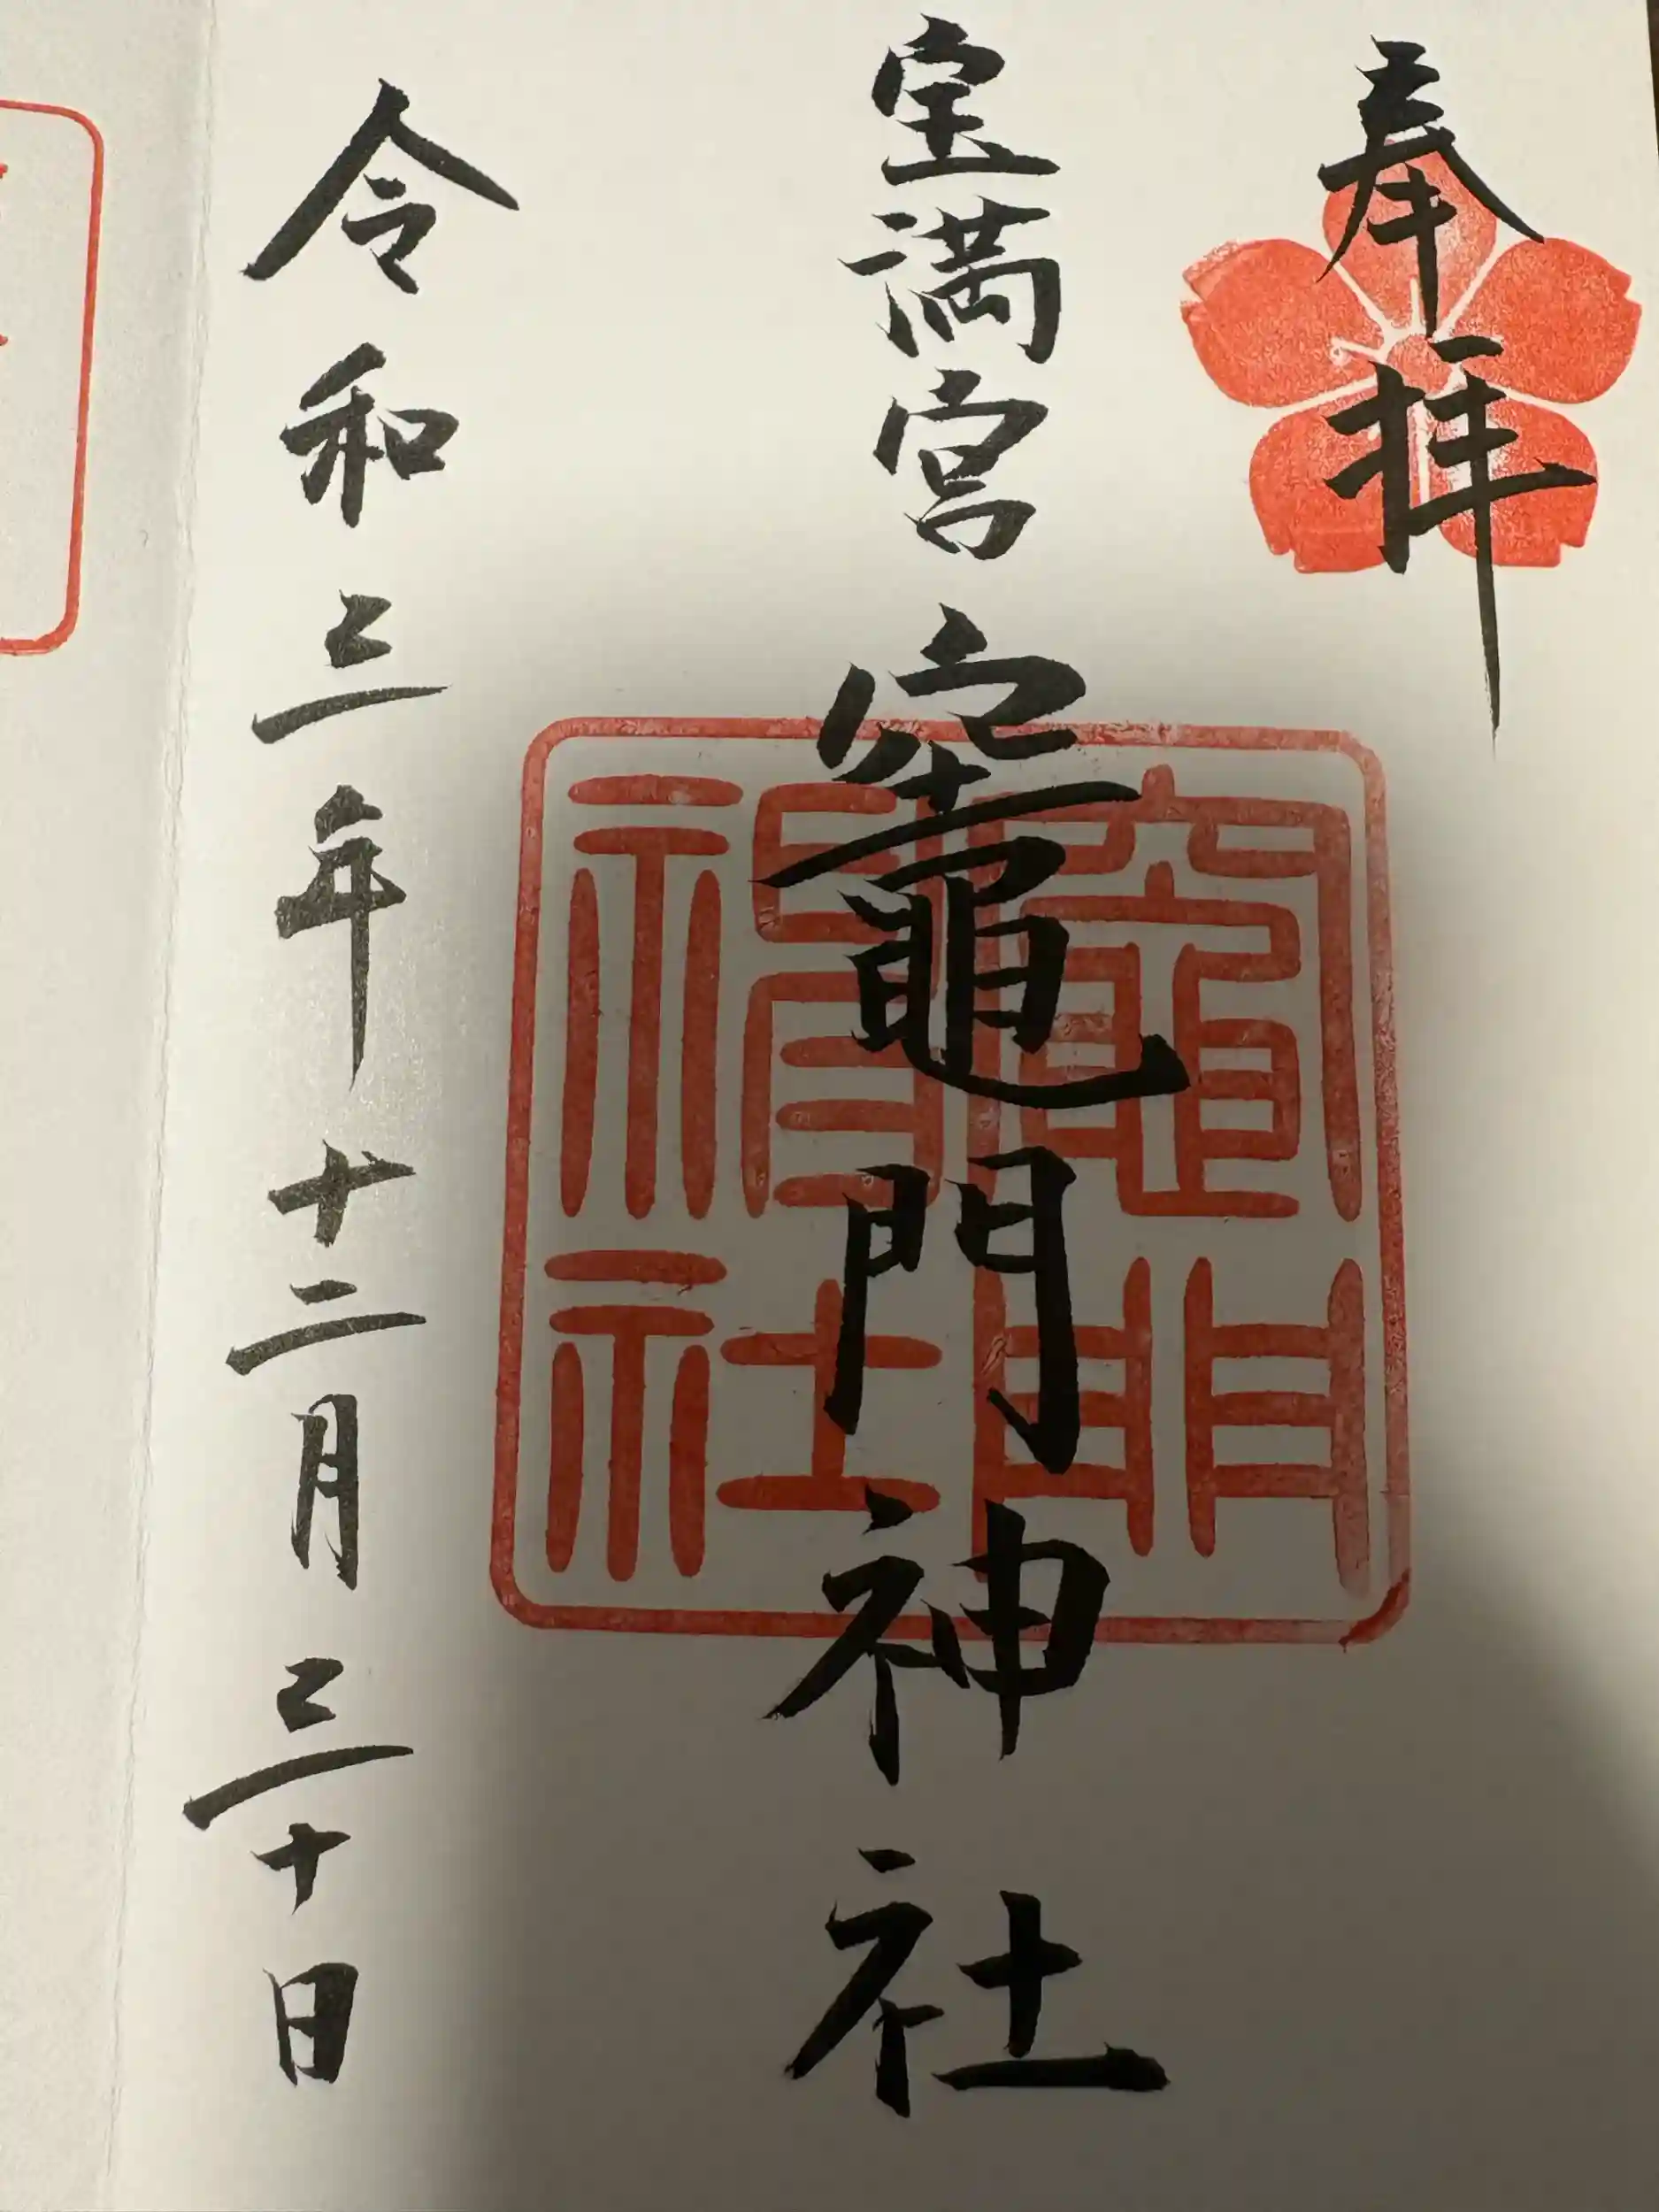 奉拝
宝満宮 竈門神社
竈門神社
令和三年十二月三十日